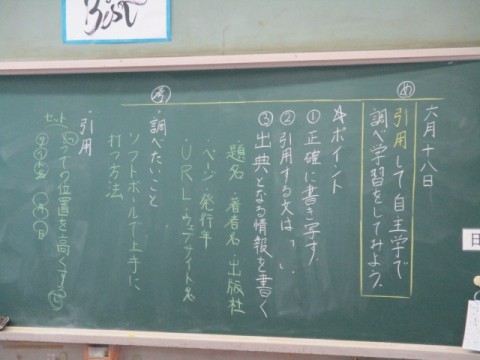 六月十八日
め
引用して自主学で
調べ学習をしてみよう。
☆ポイント
①正確に書き写す。
②引用する文は「」
③出典となる情報を書く
題名・著者名・出版社
ページ・発行年
URL・ウェブサイト名
考
・調べたいこと
ソフトボールで上手に
打つ方法
・引用
セット
ての位置を高くする